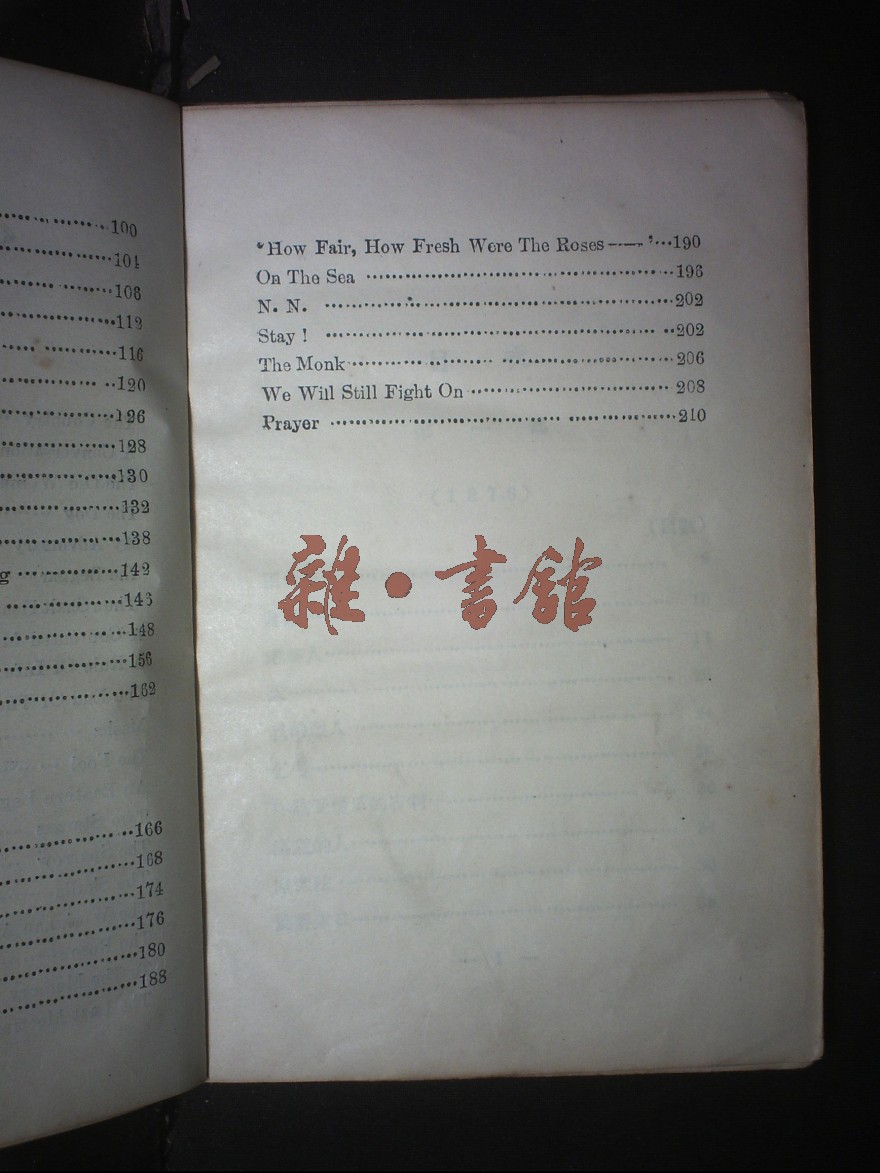 100
104
108
112
116
120
126
128
130
132
138
g 142
146
148
156
162
166
168
174
176
180
188
“How Fair, How Fresh Were The Roses——’...190
On The Sea 196
N. N. 202
Stay ! 202
The Monk 206
We Will Still Fight On 208
Prayer 210
雜·書館